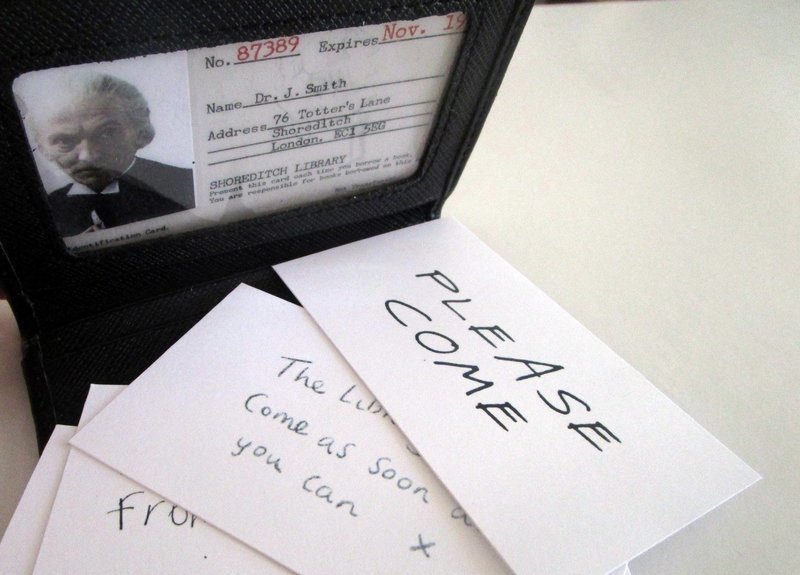 No. 87389 Expires Nov. 19
Name Dr. J. Smith
Address 76 Totter's Lane
Shoreditch
London. EC1 5EG
SHOREDITCH LIBRARY
Present this card each time you borrow a book.
You are responsible for books borrowed on this
Identification Card.
PLEASE
COME
The Libr
Come as soon a
you can
x
From